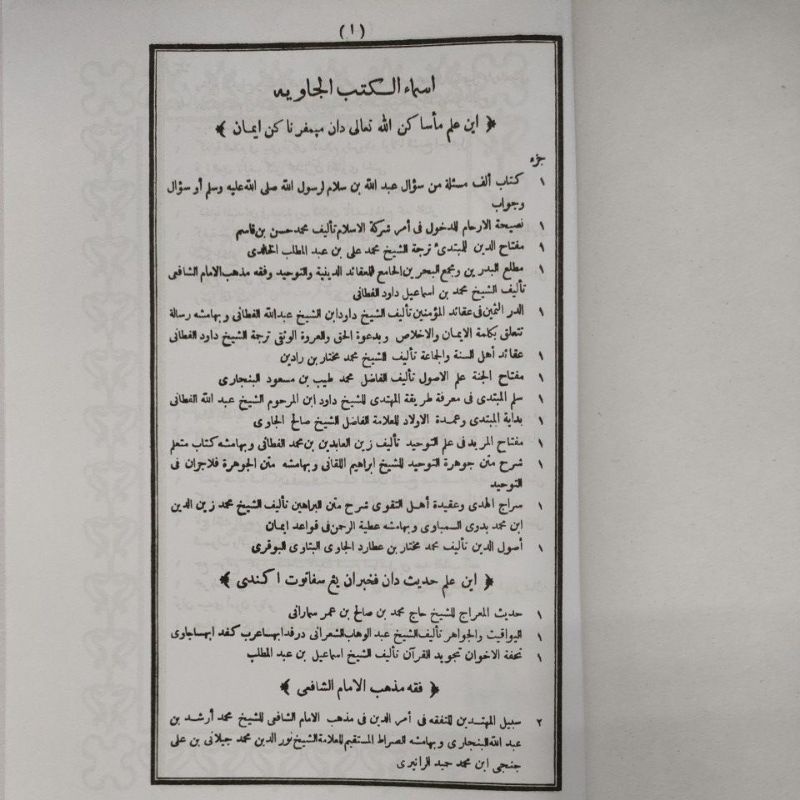 (١)
اسماء الكتب الجاويه
﴿ اين علم مأساكن الله تعالى دان ميمفرناكن ايمان ﴾
جزء
١ كتاب ألف مسئلة من سؤال عبد الله بن سلام لرسول الله صلى الله عليه وسلم أو سؤال
وجواب
١ نصيحة الارحام للدخول فى أمر شركة الاسلام تأليف محمد حسن بن قاسم
١ مفتاح الدين للمبتدئ ترجمة الشيخ محمد على بن عبد المطلب الخالدى
١ مطلع البدرين ومجمع البحرين الجامع للعقائد الدينية والتوحيد وفقه مذهب الامام الشافعى
تأليف الشيخ محمد بن اسماعيل داود الفطانى
١ الدر الثمين فى عقائد المؤمنين تأليف الشيخ داود ابن الشيخ عبدالله الفطانى وبهامشه رسالة
تتعلق بكلمة الايمان والاخلاص وبدعوة الحق والعروة الوثق ترجمة الشيخ داود الفطانى
١ عقائد أهل السنة والجماعة تأليف الشيخ محمد مختار بن رادين
١ مفتاح الجنة علم الاصول تأليف الفاضل محمد طيب بن مسعود البنجارى
١ سلم المبتدى فى معرفة طريقة المهتدى للشيخ داود ابن المرحوم الشيخ عبد الله الفطانى
١ بداية المبتدى وعمدة الاولاد للعلامة الفاضل الشيخ صالح الجاوى
١ مفتاح المريد فى علم التوحيد تأليف زين العابدين بن محمد الفطانى وبهامشه كتاب متعلم
١ شرح متن جوهرة التوحيد للشيخ ابراهيم اللقانى وبهامشه متن الجوهرة فلاجران فى
التوحيد
١ سراج الهدى وعقيدة أهل التقوى شرح متن البراهين تأليف الشيخ محمد زين الدين
ابن محمد بدوى السمباوى وبهامشه عطية الرحمن فى قواعد ايمان
١ أصول الدين تأليف محمد مختار بن عطارد الجاوى البتاوى البوقرى
﴿ اين علم حديث دان فخبران يڠ سفاتوت اكندى ﴾
١ حديث المعراج للشيخ حاج محمد بن صالح بن عمر سمارانى
١ اليواقيت والجواهر تأليف الشيخ عبد الوهاب الشعرانى درفدا بهسا عرب كفد ابهساجاوى
١ تحفة الاخوان تجويد القرآن تأليف الشيخ اسماعيل بن عبد المطلب
﴿ فقه مذهب الامام الشافعى ﴾
٢ سبيل المهتدين للتفقه فى أمر الدين فى مذهب الامام الشافعى للشيخ محمد أرشد بن
عبد الله البنجارى وبهامشه الصراط المستقيم للعلامة الشيخ نور الدين محمد جيلانى بن على
جنجى ابن محمد حميد الرانيرى